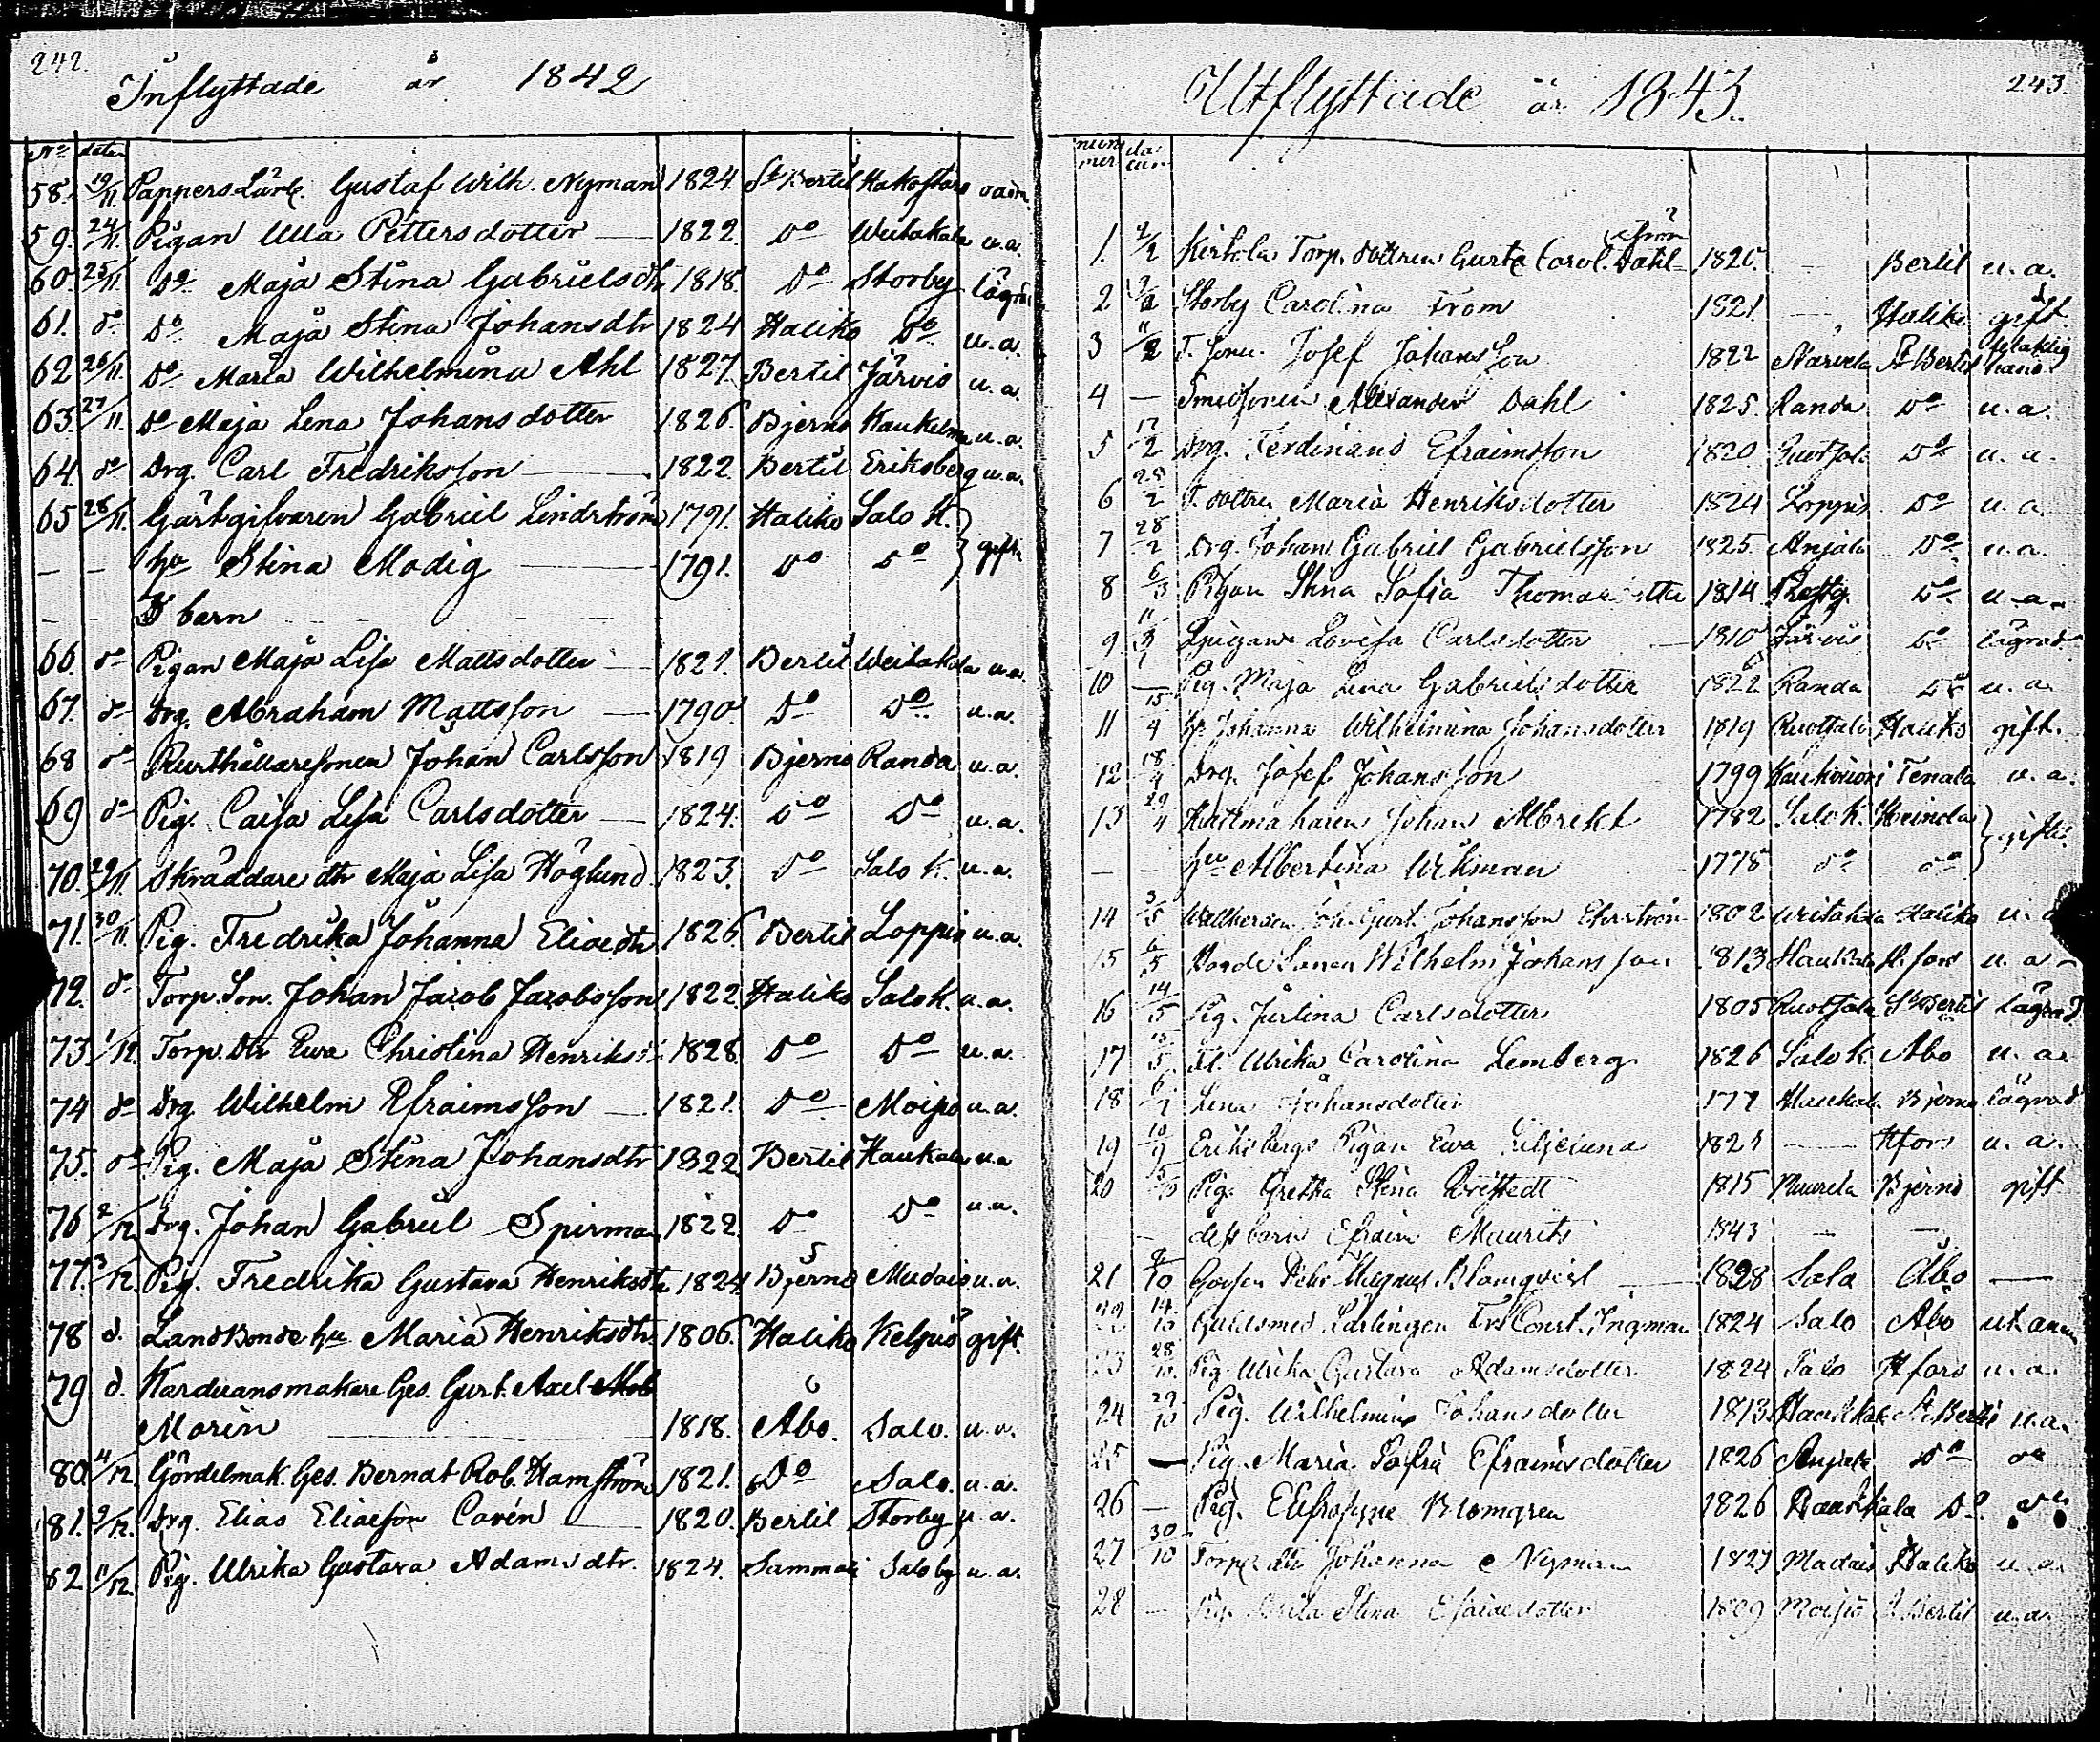 242.
Inflyttade år 1842
No daten
58. 19/11 Pappers Lärl. Gustaf Wilh. Nyman 1824. St Bertil
59. 24/11 Pigan Ulla Pettersdotter — 1822. Do Weitakala u.a.
60. 25/11 Do Maja Stina Gabrielsdtr 1818. Do Storby lägrd
61. do Do Maja Stina Johansdtr 1824 Haliko Do u.a.
62 26/11 Do Maria Wilhelmina Ahl 1827. Bertil Järvis u.a.
63. 27/11. Do Maja Lena Johansdotter 1826. Bjerno u.a.
64 do Drg. Carl Fredriksson — 1822. Bertil Eriksberg u.a.
65 28/11. Gästgifvaren Gabriel Lindström 1791. Haliko Salo K.
— — hu Stina Modig — 1791. Do Do } gifta
— — barn
66. do Pigan Maja Lisa Mattsdotter — 1821. Bertil Weitakala u.a.
67. do Drg. Abraham Mattsson — 1790. Do Do u.a.
68 do Rusthållaresonen Johan Carlsson 1819 Bjerno Randa u.a.
69 do Pig. Caisa Lisa Carlsdotter — 1824. Do Do u.a.
70. 29/11 Skräddare dtr Maja Lisa Höglund 1823. Do Salo K. u.a.
71. 30/11. Pig. Fredrika Johanna Eliaedtr 1826. Bertil Loppis u.a.
72. do Torp. Son. Johan Jacob Jacobsson 1822. Haliko Salo K. u.a.
73 1/12. Torp. Dtr Ewa Christina Henriksd 1828. Do Do u.a.
74 do Drg. Wilhelm Efraimsson — 1821. Do Moisio u.a.
75. do Pig. Maja Stina Johansdtr 1822 Bertil Haukala u.a
76 2/12 Drg. Johan Gabriel Spirman 1822. Do Do u.a.
77. 3/12. Pig. Fredrika Gustava Henriksdtr 1824 Bjerno Mudais u.a.
78 d. Landbonde hu Maria Henriksdtr. 1806. Haliko Keljus gift.
79 d. Karduansmakare Ges. Gust. Axel
Morin — 1818. Åbo. Salo. u.a.
80. 4/12. Gördelmak. Ges. Berndt Rob. Hamström 1821. Do Salo. u.a.
81. 9/12. Drg. Elias Eliaeson Cavén — 1820. Bertil Storby u.a.
82 11/12. Pig. Ulrika Gustava Adamsdtr. 1824. Salo by u.a.
243.
Utflyttade år 1843.
nummer datum
ström
1. 2/2 Kirkola Torp. dottren Gusta Carol. Dahl- 1820. — Bertil u.a.
2 9/2 Storby Carolina From 1821. — Haliko gift.
3 11/2 T. sonen Josef Johansson 1822 St Bertil
4 — Smedsonen Alexander Dahl 1825. Randa Do u.a.
5 17/2 Drg. Ferdinand Efraimsson 1820 Do u.a.
6 25/2 T. dottren Maria Henriksdotter 1824 Loppis Do u.a.
7 28/2 Drg. Johan Gabriel Gabrielsson 1825. Anjala Do u.a.
8 6/3 Pigan Stina Sofia Thomasdotter 1814 Do u.a.
9 11/3 Lovisa Carlsdotter — 1810 Järvis Do lägrad
10 — Pig. Maja Lena Gabrielsdotter 1822 Randa Do u.a.
11 15/4 hu Johanna Wilhelmina Johansdotter 1819 Ruotsala gift.
12 18/4 Drg. Josef Johansson 1799 Tenala u.a.
13 29/4 Hattmakaren Johan Albrekt 1782 Salo K.
— — hu Albertina Wikman 1778 do do } gifta
14 3/5 Joh. Gust. Johansson 1802 Weitakala Haliko
15 6/5 Wilhelm Johansson 1813 H.fors u.a.
16 14/5 Pig. Carlsdotter 1805 Ruotsala St Bertil lägrad
17 15/5 Fl. Ulrika Carolina Lemberg 1826 Salo K. Åbo u.a.
18 6/7 Lena Johansdotter Haukala Bjerno lägrad
19 10/9 Eriksbergs Pigan Ewa — Hfors u.a.
20 5/10 Pig. Gretha Stina 1815 Bjerno gift
— dess barn Efraim Maurits 1843 — —
21 8/10 Petr Magnus Blomqvist — 1828 Salo Åbo —
22 14/10 Guldsmed Lärlingen Const. Ingman 1824 Salo Åbo
23 28/10. Pig. Ulrika Gustava Adamsdotter 1824 Salo Hfors u.a.
24 29/10 Pig. Wilhelmina Johansdotter 1813 St. Bertil u.a.
25 — Pig. Maria Sofia Efraimsdotter 1826 Anjala Do do
26 — Pig. Eufrosyne Blomgren 1826 Do do
27 30/10 Torp. dtr Johanna Nyman Haliko u.a.
28 — Pig. Stina 1809 Moisio St Bertil u.a.